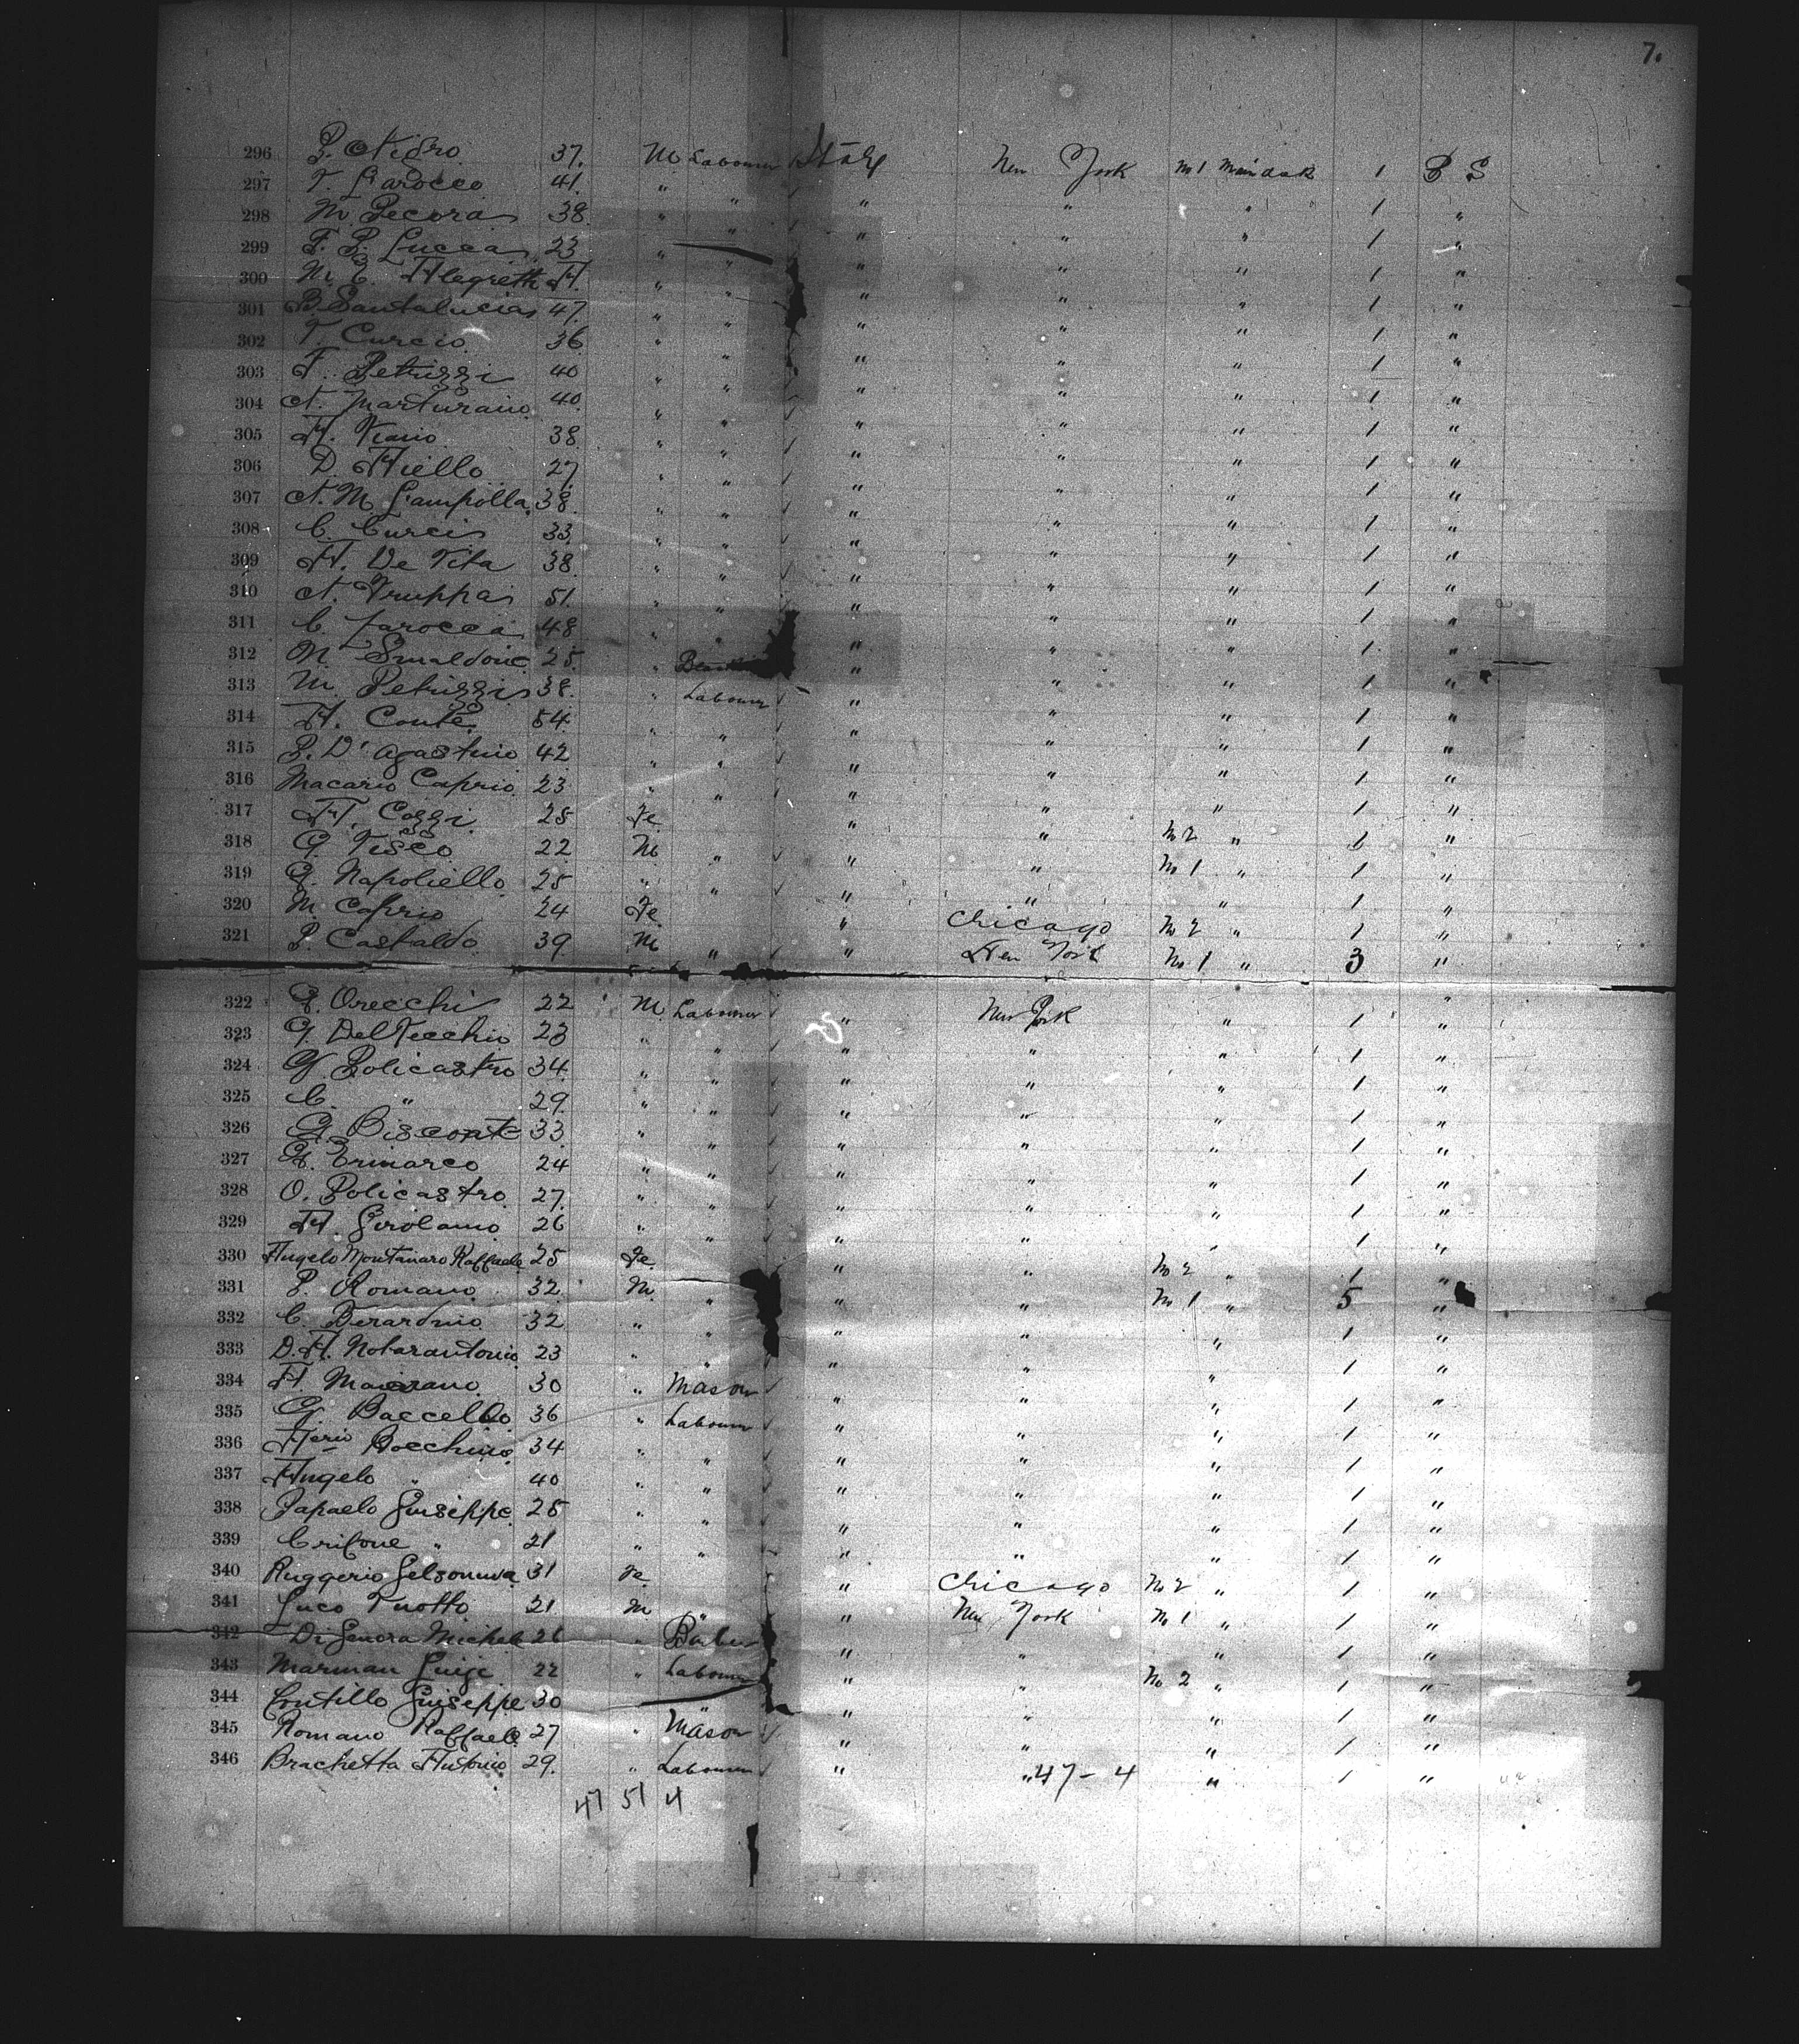 7.
296 P. Nigro 37. M Labourer Italy New York No 1 Main deck 1 B S
297 V. Larocco 41. " " " " " 1 "
298 M. Pecora 38. " " " " " 1 "
299 F. P. Lucca 23 " " " " " 1 "
300 M. C. Alegretti " " " " " 1 "
301 B. Santalucia 47. " " " " " 1 "
302 V. Curcio 36 " " " " " 1 "
303 F. Petruzzi 40 " " " " " 1 "
304 N. Marturano 40. " " " " " 1 "
305 A. Viano 38 " " " " " 1 "
306 D. Aiello 27. " " " " " 1 "
307 N. M. Giampolla 38. " " " " " 1 "
308 C. Curcis 33. " " " " " 1 "
309 A. De Vita 38. " " " " " 1 "
310 N. Truppa 51. " " " " " 1 "
311 C. Larocca 48 " " " " " 1 "
312 N. Smaldone 25. " " " " 1 "
313 M. Petruzzi 38. " Labourer " " " 1 "
314 A. Conte 54. " " " " " 1 "
315 P. D'Agastino 42 " " " " " 1 "
316 Macario Caprio 23 " " " " " 1 "
317 A. Cozzi 25 Fe " " No 2 " 1 "
318 G. Tisco 22 M " " " No 1 " 1 "
319 G. Napoliello 25 " " " " " 1 "
320 M. Caprio 24 Fe " Chicago No 2 " 1 "
321 P. Castaldo 39 M " " New York No 1 " 3 "
322 G. Orecchi 22 M Labourer " New York " 1 "
323 G. Del Vecchio 23 " " " " " 1 "
324 G. Policastro 34. " " " " " 1 "
325 C. " 29. " " " " " 1 "
326 G. Bisconte 33 " " " " " 1 "
327 G. Ermarco 24 " " " " " 1 "
328 O. Policastro 27. " " " " " 1 "
329 A. Girolamo 26 " " " " " 1 "
330 Angelo Montanaro Raffaele 25 Fe. " " No 2 " 1 "
331 P. Romano 32 M. " " " No 1 " 5 "
332 C. Berardino 32 " " " " " 1 "
333 D. A. Notarantonio 23 " " " " " 1 "
334 A. 30 " Mason " " " 1 "
335 G. Baccello 36 " Labourer " " " 1 "
336 Bocchino 34 " " " " " 1 "
337 Angelo " 40 " " " " " 1 "
338 Papaelo Guiseppe 25 " " " " " 1 "
339 Crifone " 21 " " " " " 1 "
340 Ruggerio Gelsomina 31 Fe " Chicago No 2 " 1 "
341 Luco Tuotto 21 M " " New York No 1 " 1 "
342 Di Genora Michele 26 " Barber " " " 1 "
343 Marinan Luigi 22 " Labourer " " No 2 " 1 "
344 Contillo Guiseppe 30 " " " 1 "
345 Romano Raffaele 27 " Mason " " " 1 "
346 Brachetta Antonio 29. " Labourer " " 47 - 4 " 1 "
47 51 4